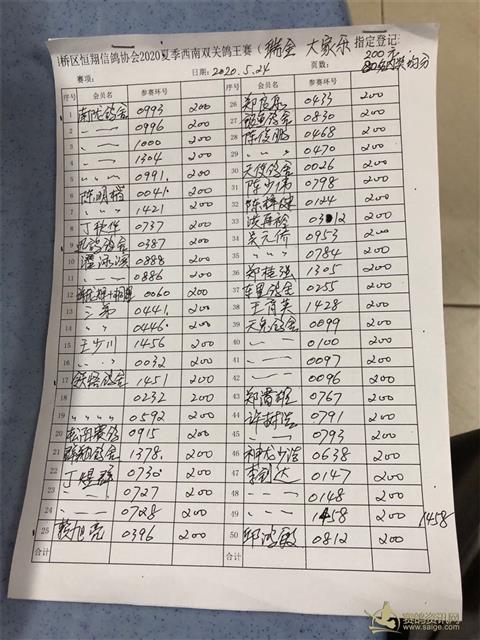 桥区恒翔信鸽协会2020夏季西南双关鸽王赛(瑞金 大家乐 指定登记
赛项: 日期:2020.5.24 页数: 200元
序号 会员名 参赛环号 序号 会员名 参赛环号
1 南陇鸽舍 0993 200 26 0433 200
2 〃 0996 200 27 鸽舍 0830 200
3 〃 1000 200 28 陈俊鹏 0468 200
4 〃 1304 200 29 〃 0470 200
5 〃 0991. 200 30 天使鸽舍 0026 200
6 陈明楷 0041. 200 31 陈少伟 0798 200
7 〃 1421 200 32 0124 200
8 丁 0737 200 33 200
9 鸽舍 0387 200 34 吴元侨 0953 200
10 0888 200 35 〃 0784 200
11 〃 0886 200 36 郑桂强 1305 200
12 0060 200 37 车里鸽舍 0255 200
13 三弟 0441. 200 38 王育英 1428 200
14 〃 0446. 200 39 天克鸽舍 0099 200
15 王少川 1456 200 40 〃 0100 200
16 〃 0032 200 41 〃 0097 200
17 鸽舍 1451 200 42 〃 0096 200
18 0232 200 43 0767 200
19 〃 0592 200 44 许 0791 200
20 赛鸽 0915 200 45 〃 0793 200
21 鸽舍 1378. 200 46 神龙 0638 200
22 丁煜 0730 200 47 李 达 0147 200
23 〃 0727 200 48 〃 0148 200
24 〃 0728 200 49 〃 1458 200 1458
25 赖旭亮 0396 200 50 邱鸿毅 0812 200
合计 合计
赛鸽资讯网
www.saige.com